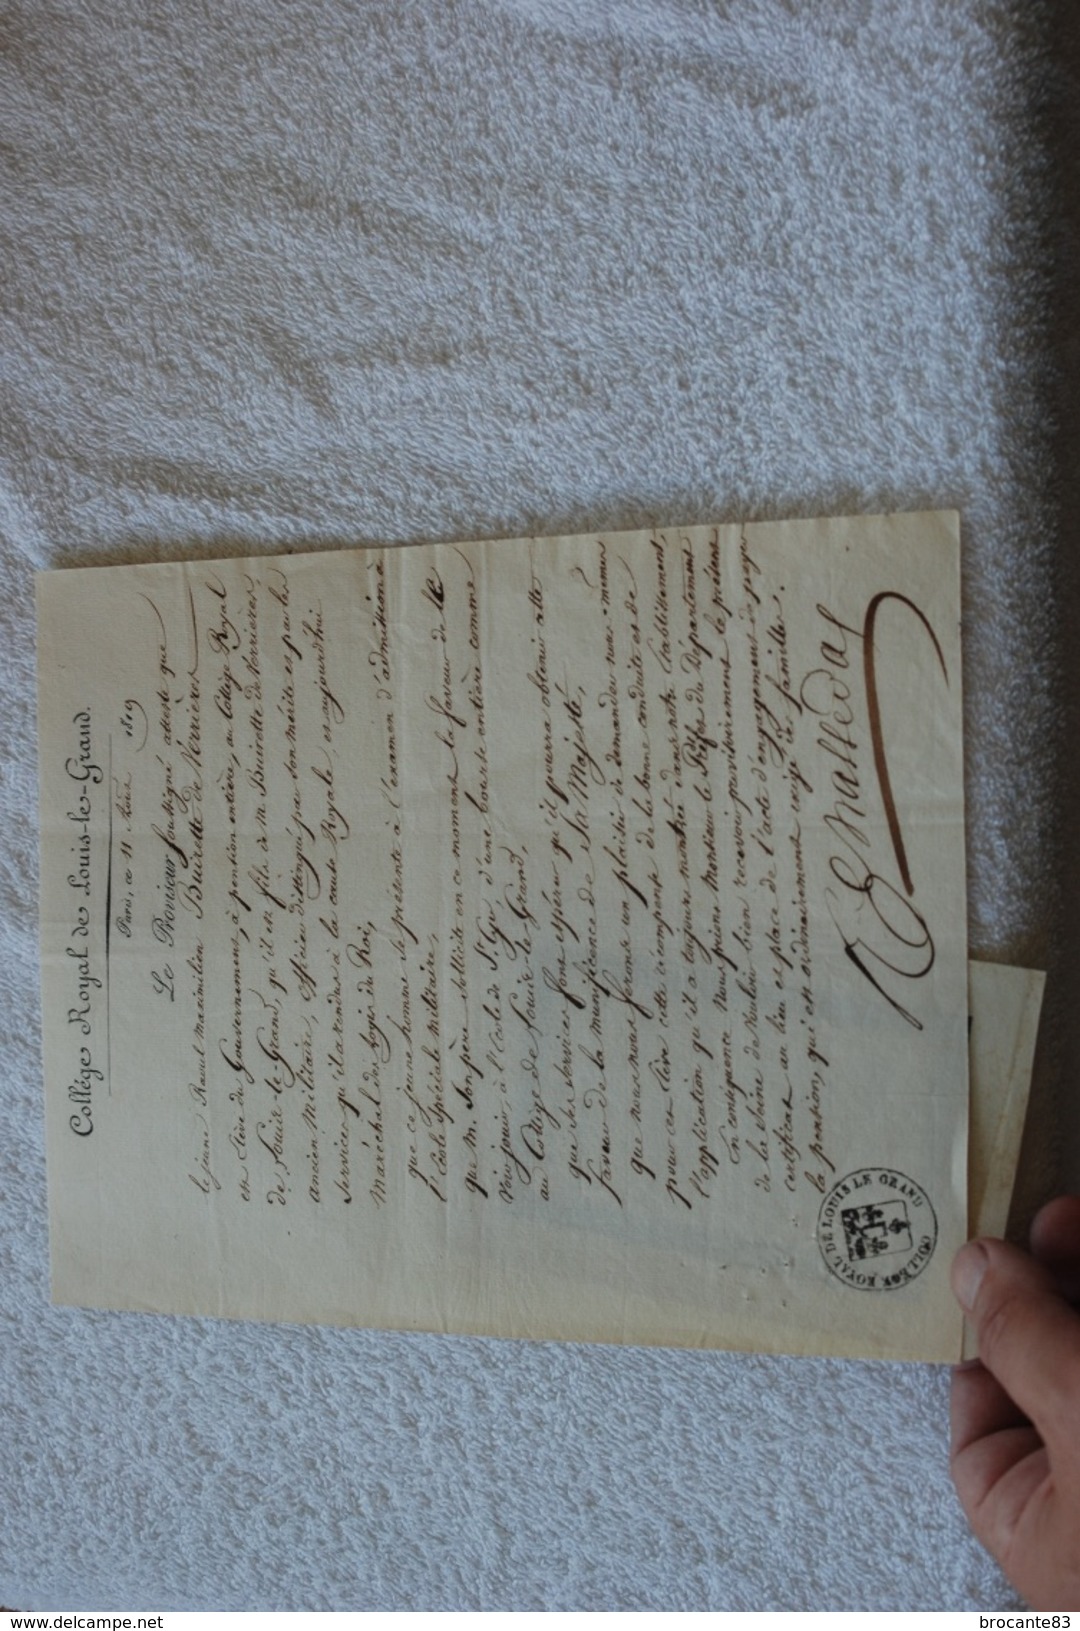 Collège Royal de Louis-le-Grand.
Paris, ce 11 Août 1819
Le Proviseur soussigné atteste que
le jeune Raoul Maximilien Buirette de Verrières
est élève du Gouvernement, à pension entière, au Collège Royal
de Louis-le-Grand, qu'il est fils de M. Buirette de Verrières
ancien militaire, officier distingué par son mérite et par les
services qu'il a rendus à la cause Royale, et aujourd'hui
Maréchal des logis du Roi;
que ce jeune homme se présente à l'examen d'admission à
l'Ecole Spéciale militaire,
que M. son père sollicite en ce moment la faveur de le
voir jouir, à l'Ecole de St Cyr, d'une bourse entière comme
au Collège de Louis-le-Grand,
que ses services font espérer qu'il pourra obtenir cette
faveur de la munificence de Sa Majesté,
que nous nous ferons un plaisir de demander nous-même
pour cet élève cette récompense de la bonne conduite et de
l'application qu'il a toujours montrée dans notre établissement,
En conséquence Nous prions Monsieur le Préfet du Département
de la Seine de vouloir bien recevoir provisoirement le présent
certificat au lieu et place de l'acte d'engagement de payer
la pension, qui est ordinairement exigé des familles.
Malleval
COLLEGE ROYAL DE LOUIS LE GRAND
delcampe.net
brocante83